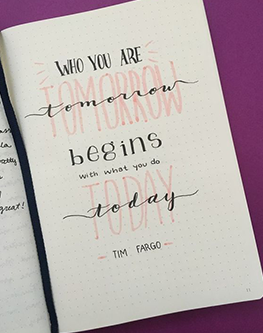 WHO YOU ARE
TOMORROW
tomorrow
begins
with what you do
TODAY
today
- TIM FARGO -
great!